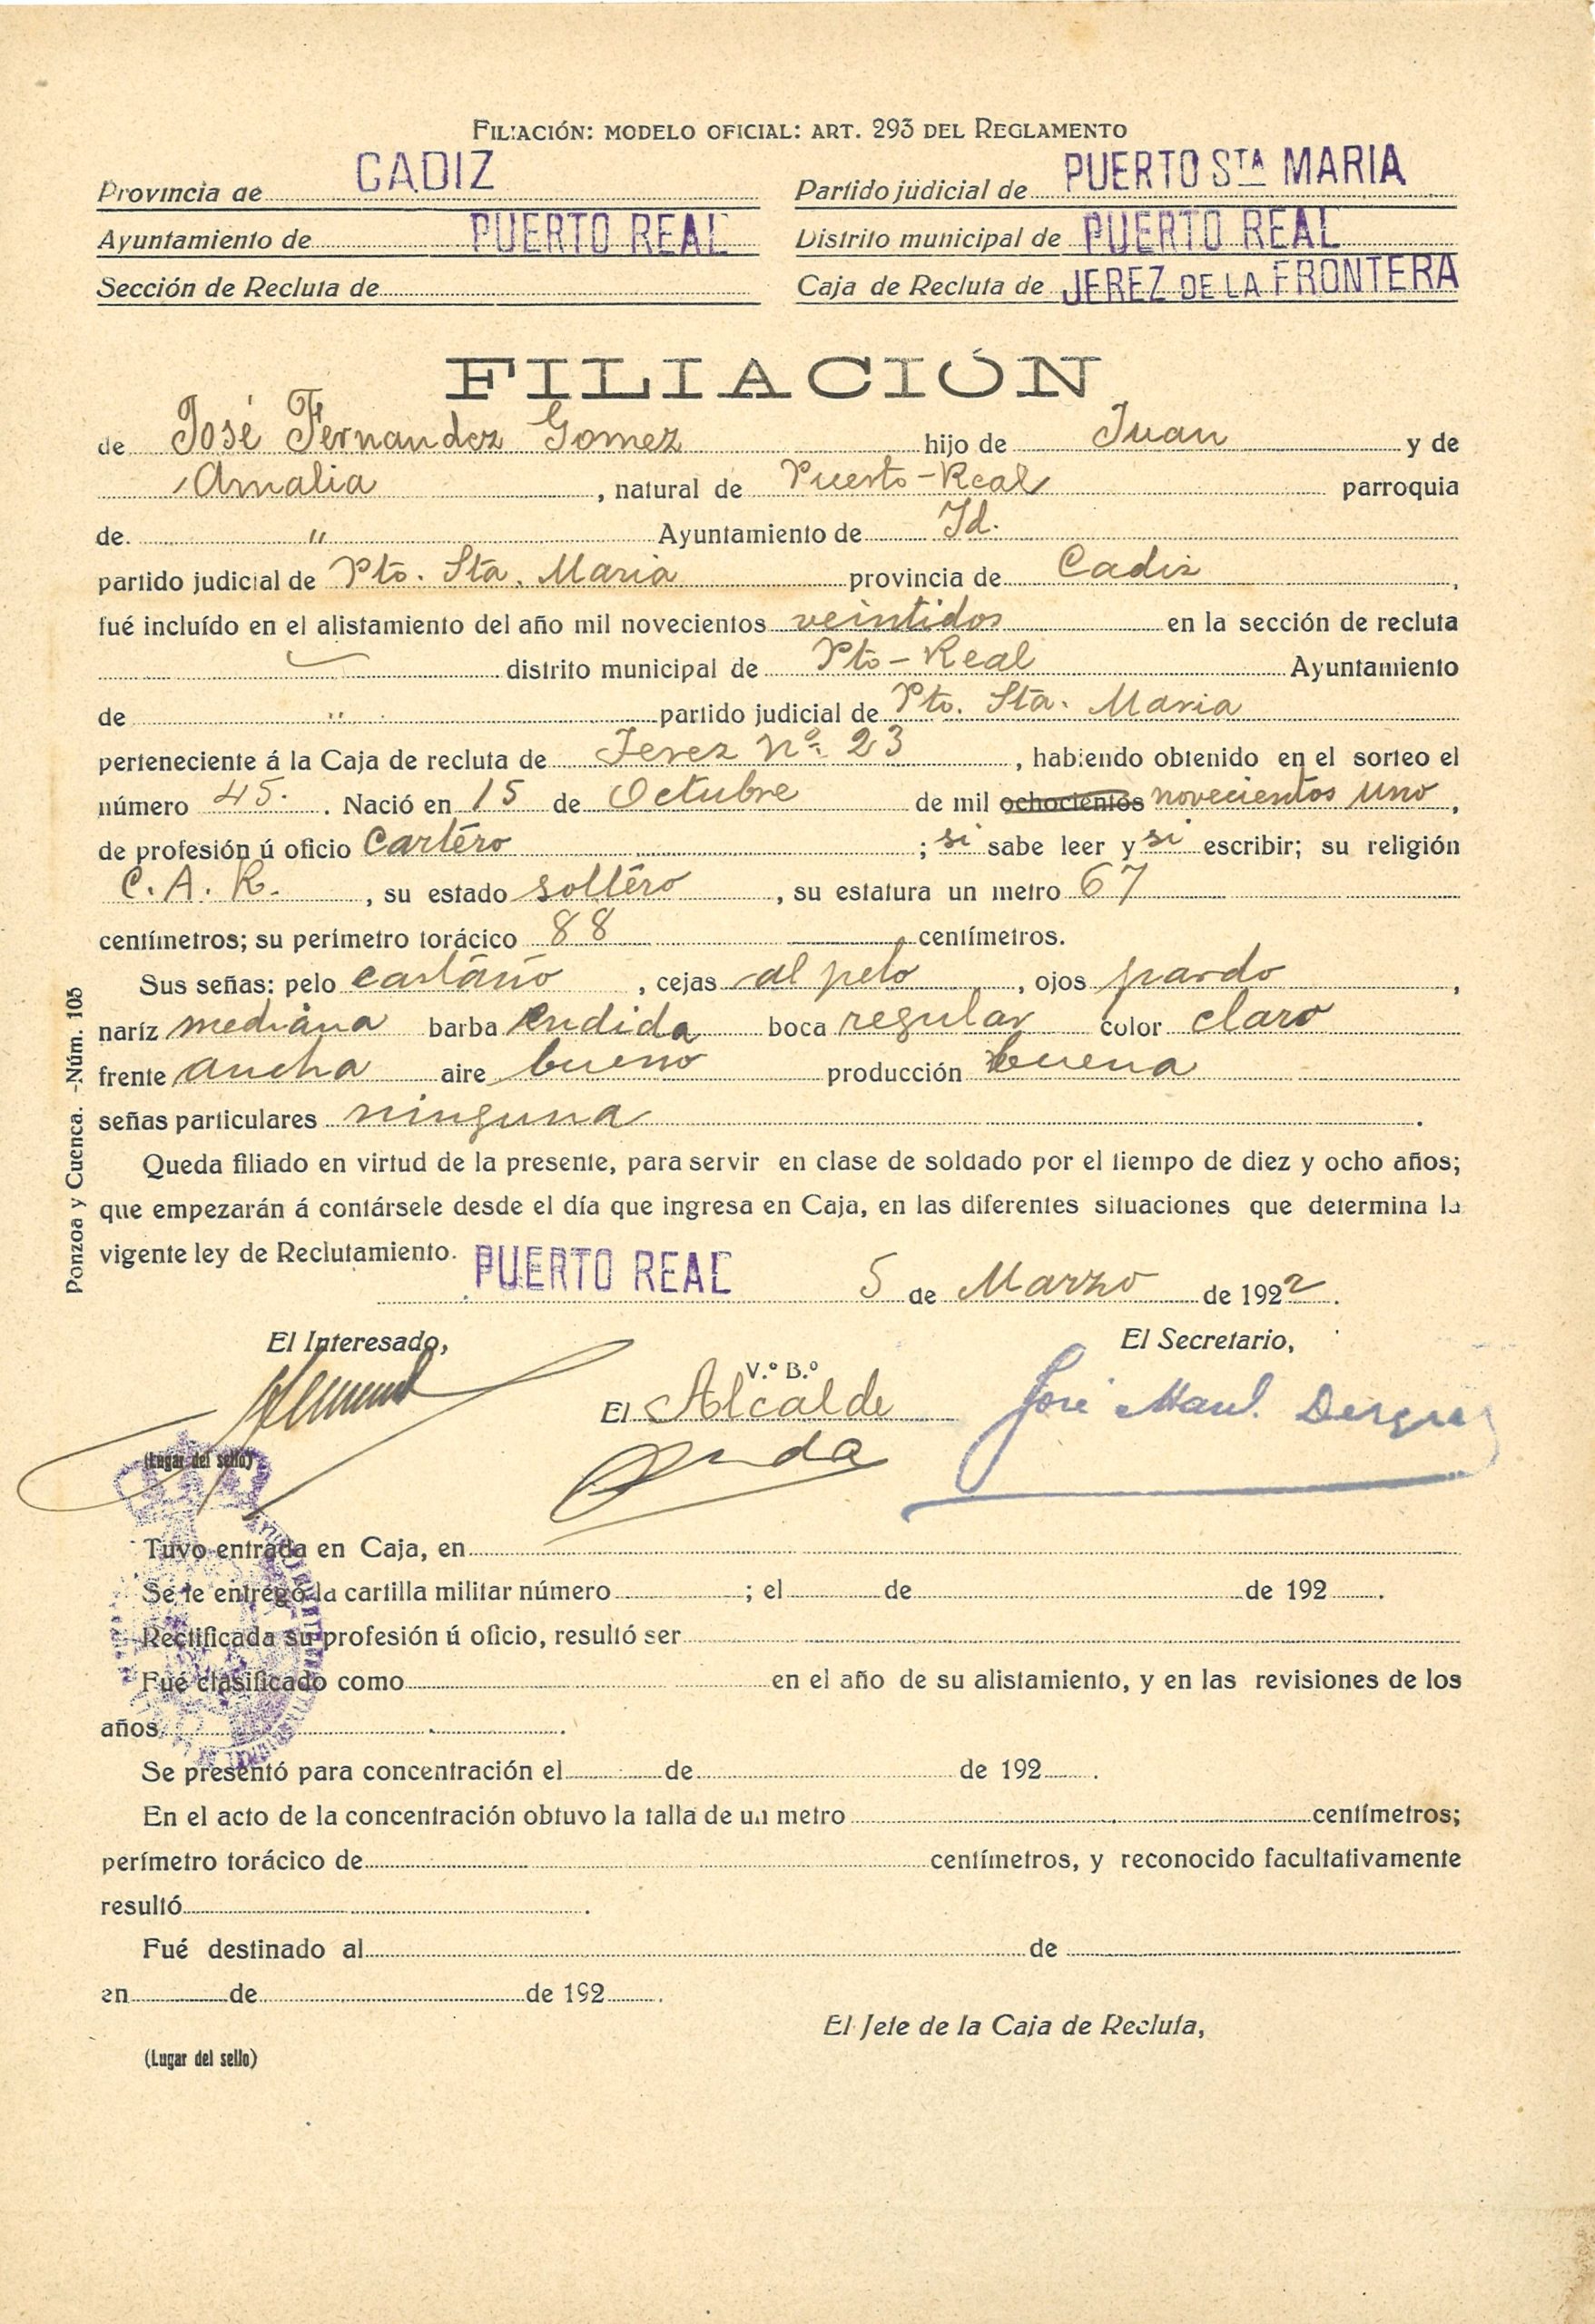 FILIACIÓN: MODELO OFICIAL: ART. 293 DEL REGLAMENTO
Provincia de CADIZ Partido judicial de PUERTO STA MARIA
Ayuntamiento de PUERTO REAL Distrito municipal de PUERTO REAL
Sección de Recluta de Caja de Recluta de JEREZ DE LA FRONTERA
FILIACIÓN
de José Fernandez Gomez hijo de Juan y de
Amalia, natural de Puerto-Real parroquia
de. " Ayuntamiento de Id.
partido judicial de Pto. Sta. Maria provincia de Cadiz,
fué incluído en el alistamiento del año mil novecientos veintidos en la sección de recluta
distrito municipal de Pto-Real Ayuntamiento
de " partido judicial de Pto. Sta. Maria
perteneciente á la Caja de recluta de Jerez nº 23, habiendo obtenido en el sorteo el
número 45. Nació en 15 de Octubre de mil ochocientos novecientos uno,
de profesión ú oficio Cartéro; si sabe leer y si escribir; su religión
C. A. R., su estado soltéro, su estatura un metro 67
centímetros; su perímetro torácico 88 centímetros.
Sus señas: pelo castaño, cejas al pelo, ojos pardo,
naríz mediana barba endida boca regular color claro
frente ancha aire bueno producción buena
señas particulares ninguna.
Queda filiado en virtud de la presente, para servir en clase de soldado por el tiempo de diez y ocho años;
que empezarán á contársele desde el día que ingresa en Caja, en las diferentes situaciones que determina la
vigente ley de Reclutamiento.
PUERTO REAL 5 de Marzo de 1922.
El Interesado, El Secretario,
V.º B.º
El Alcalde José Manl.
(Lugar del sello)
Tuvo entrada en Caja, en
Se le entregó la cartilla militar número ; el de de 192 .
Rectificada su profesión ú oficio, resultó ser
Fué clasificado como en el año de su alistamiento, y en las revisiones de los
años .
Se presentó para concentración el de de 192 .
En el acto de la concentración obtuvo la talla de un metro centímetros;
perímetro torácico de centímetros, y reconocido facultativamente
resultó .
Fué destinado al de
en de de 192 .
El Jefe de la Caja de Recluta,
(Lugar del sello)
Ponzoa y Cuenca. -Núm. 105